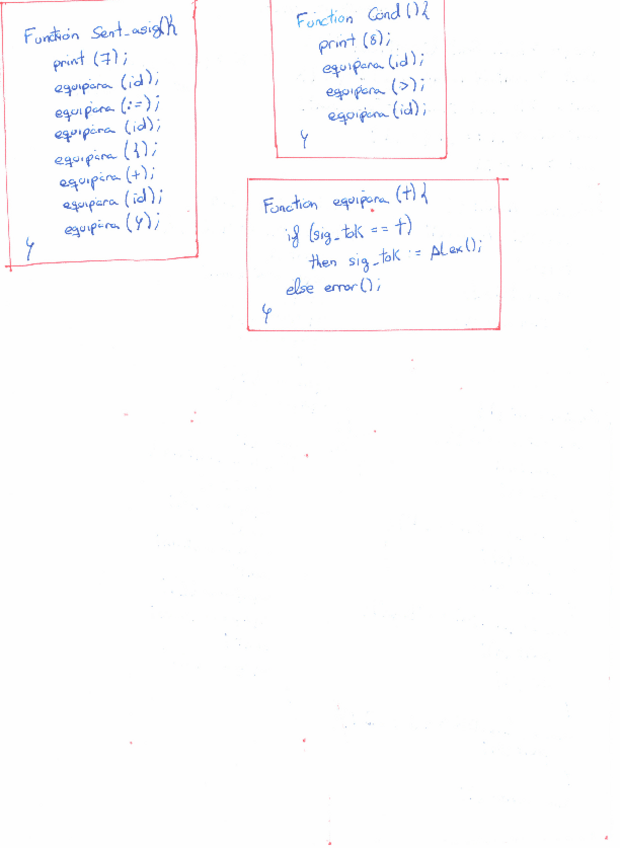 Function Sent_asig(){
print (7);
equipara (id);
equipara (:=);
equipara (id);
equipara ({);
equipara (+);
equipara (id);
equipara (});
}
Function Cond (){
print (8);
equipara (id);
equipara (>);
equipara (id);
}
Function equipara (t){
if (sig_tok == t)
then sig_tok := ALex();
else error();
}